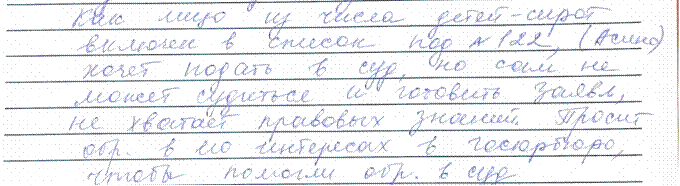 Как лицо из числа детей-сирот
включен в список под № 122, (Асино)
хочет подать в суд, но сам не
может судиться и готовить заявл,
не хватает правовых знаний. Просит
обр. в его интересах в госюрбюро,
чтобы помогли обр. в суд